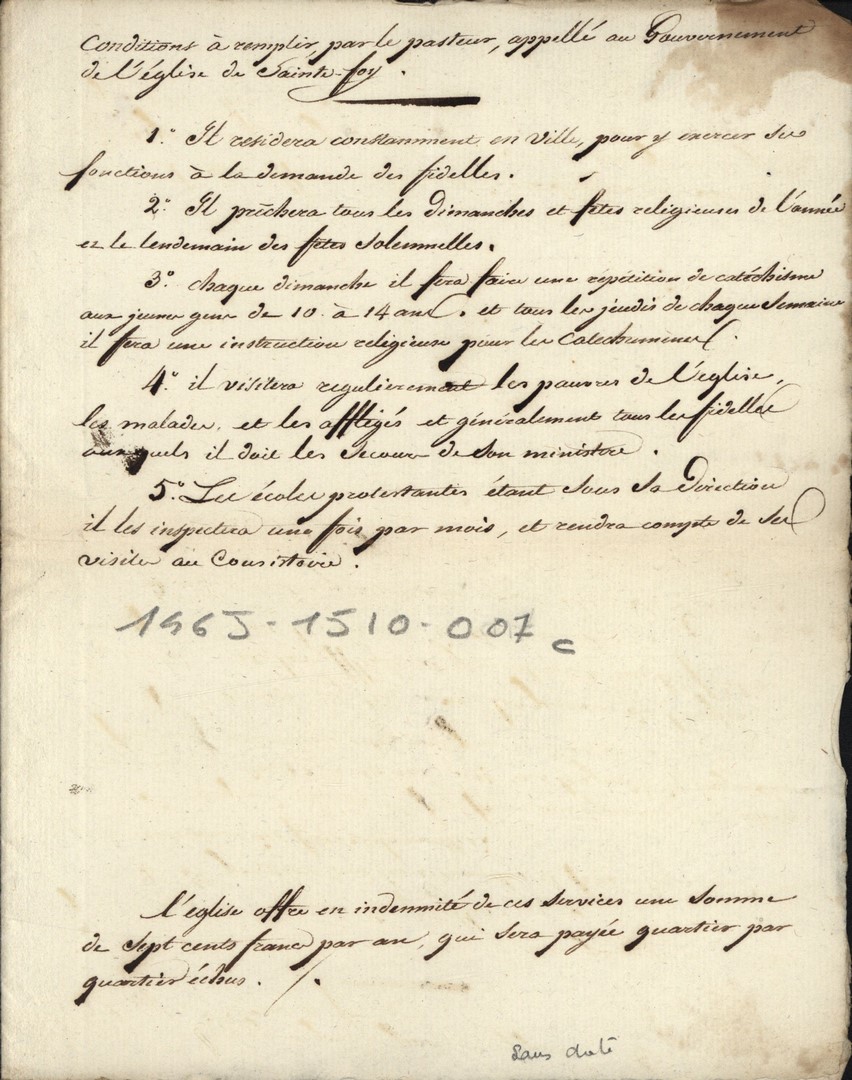 Conditions à remplir, par le pasteur, appellé au Gouvernement
de l'église de Sainte-foy.
1.° Il residera constamment en Ville, pour y exercer ses
fonctions à la demande des fidelles.
2.° Il prêchera tous les Dimanches et fêtes religieuses de l'année
et le lendemain des fêtes Solemnelles.
3.° chaque dimanche il fera faire une répétition de catéchisme
aux jeunes gens de 10. à 14 ans. et tous les jeudis de chaque Semaine
il fera une instruction religieuse pour les Catechumenes.
4.° il visitera regulierement les pauvres de l'église,
les malades, et les affligés et généralement tous les fidelles
auxquels il doit les Secours de Son ministère.
5.° Les écoles protestantes étant Sous Sa Direction
il les inspectera une fois par mois, et rendra compte de Ses
visites au Consistoire.
1965-1510-007c
l'église offre en indemnité de ces Services une Somme
de Sept cents francs par an, qui Sera payée quartier par
quartier échus.
Sans date